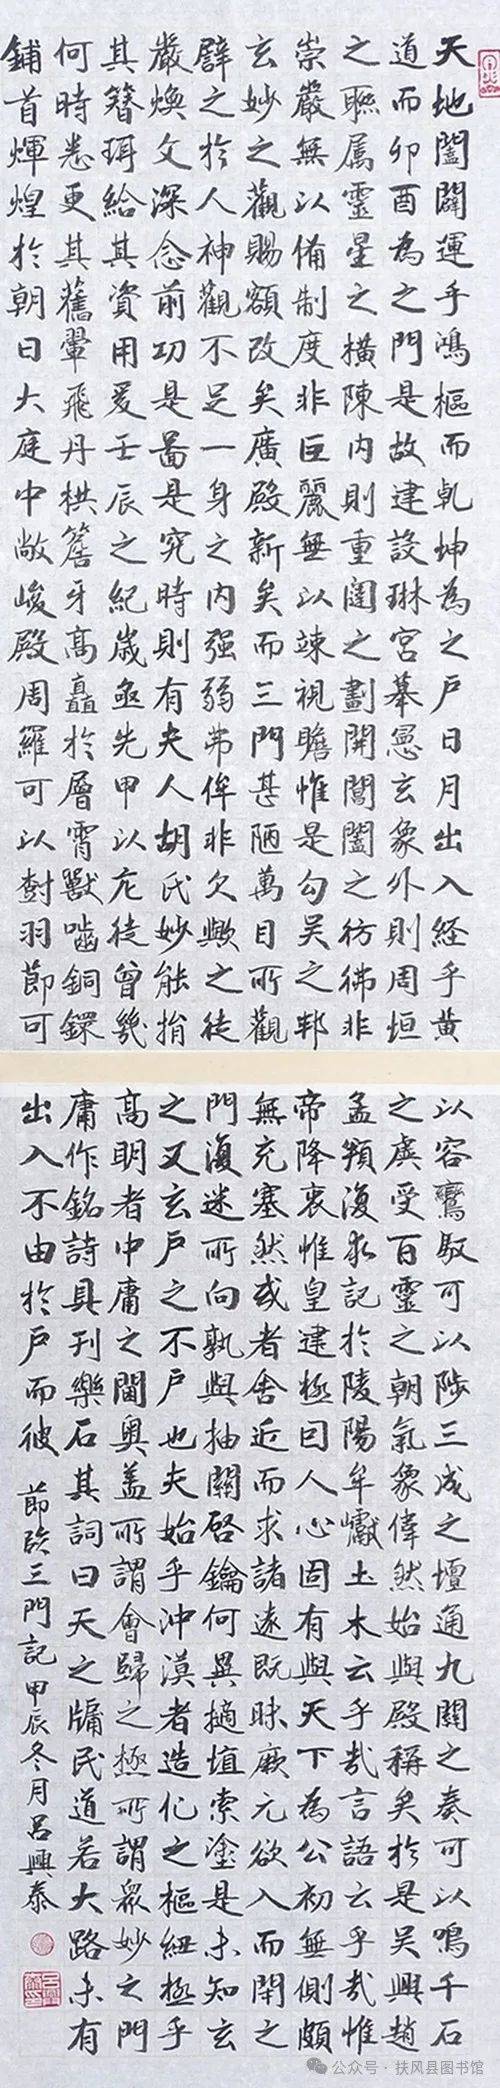 天地闔闢運乎鴻樞而乹坤為之戶日月出入経乎黄
道而卯酉為之門是故建設琳宮摹憲玄象外則周垣
之聮属靈星之橫陳内則重闥之劃開閶闔之彷彿非
崇嚴無以俻制度非巨麗無以竦視瞻惟是勾吴之邦
玄妙之觀賜額改矣廣殿新矣而三門甚陋萬目所觀
譬之於人神觀不足一身之内强弱弗侔非欠歟之徒
嚴煥文深念前功是啚是究時則有夫人胡氏妙能捐
其簪珥給其資用爰壬辰之紀嵗亟先甲以庀徒曾幾
何時悉更其舊翬飛丹栱簷牙髙矗於層霄獸嚙銅鐶
鋪首煇煌於朝日大庭中敞峻殿周羅可以樹羽節可
以容鸞馭可以陟三成之壇通九關之奏可以鳴千石
之虡受百靈之朝氣象偉然始與殿稱矣於是吴興趙
孟頫復求記於陵陽牟巘土木云乎哉言語云乎哉惟
帝降衷惟皇建極曰人心固有與天下為公初無側頗
無充塞然或者舍近而求諸遠既昧厥元欲入而閉之
門復迷所向孰與抽關啓鑰何異擿埴索塗是未知玄
之又玄戶之不戶也夫始乎沖漠者造化之樞紐極乎
髙明者中庸之閫奥盖所謂會歸之極所謂衆妙之門
庸作銘詩具刊樂石其詞曰天之牖民道若大路未有
出入不由於戶而彼
節臨三門記甲辰冬月吕興泰
公众号·扶风县图书馆